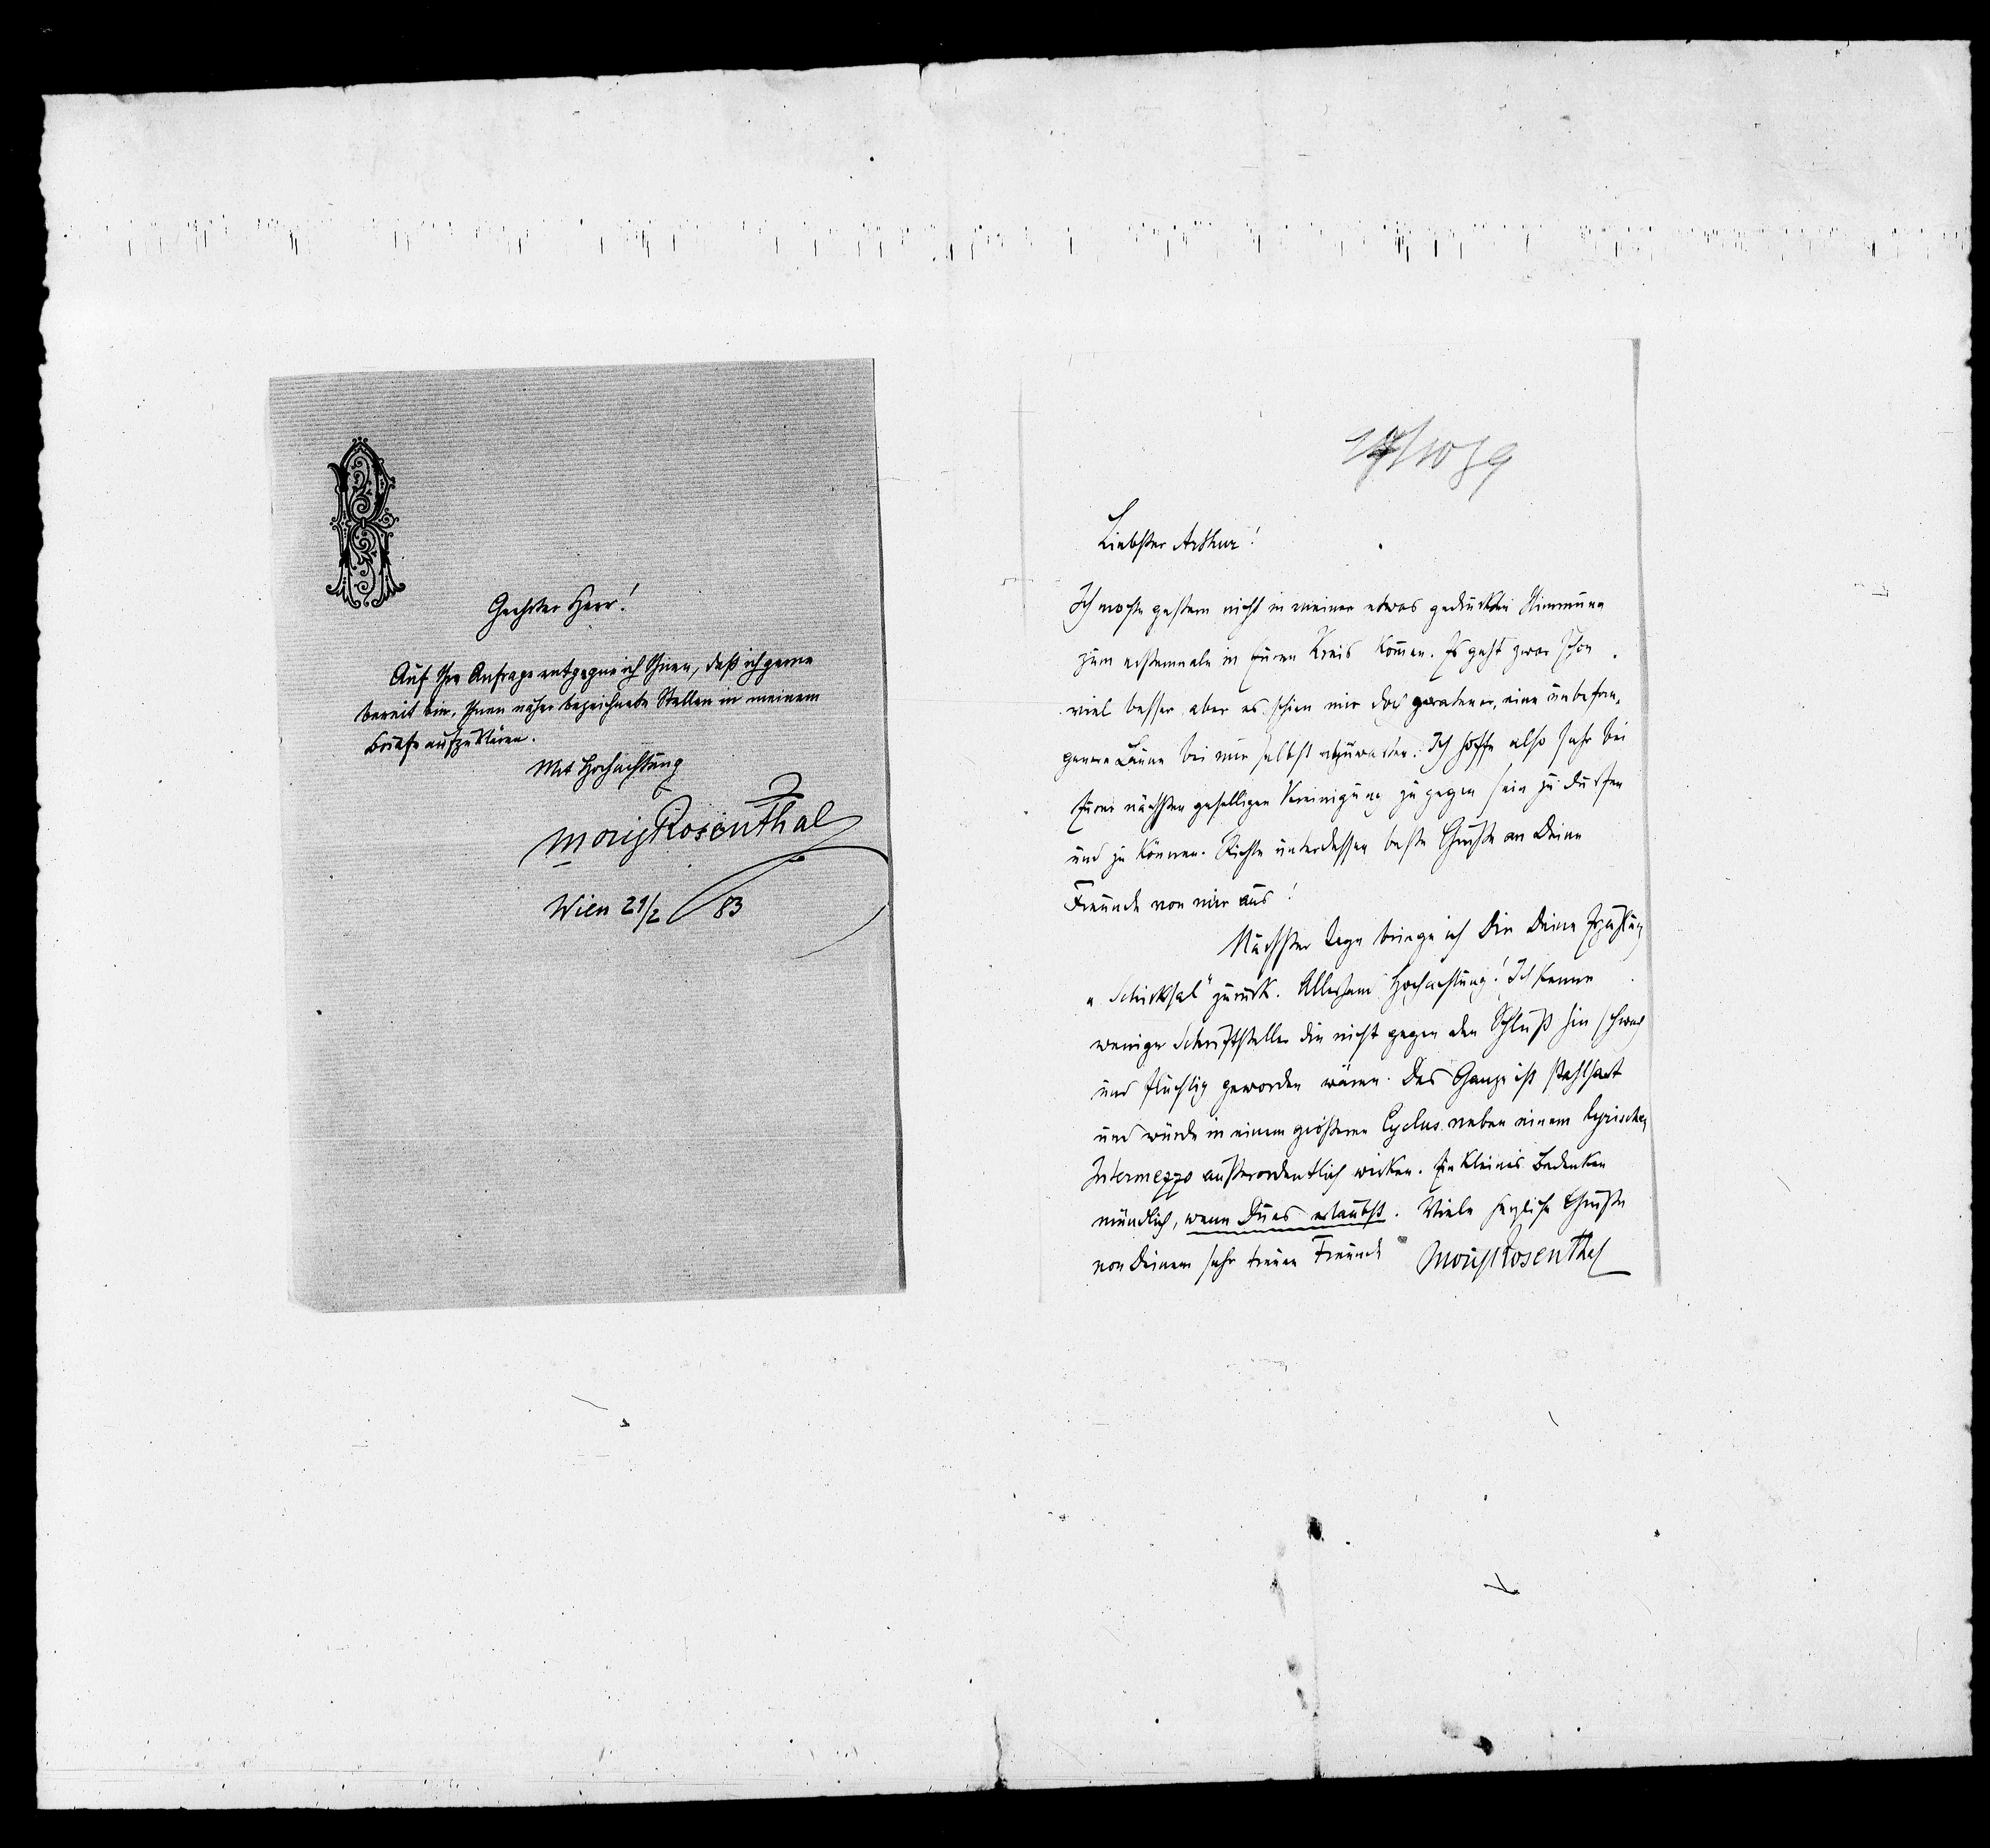 R
Geehrter Herr!
Auf Ihre Anfrage entgegne ich Ihnen, daß ich gerne
bereit bin, Ihnen näher bezeichnete Stellen in meinem
Briefe aufzuklären.
Mit Hochachtung
Moriz Rosenthal
Wien 21/2 83
17/10 89
Liebster Arthur!
Ich mochte gestern nicht in meiner etwas gedrückten Stimmung
zum erstenmale in Euren Kreis kommen. Es geht zwar schon
viel besser aber es schien mir doch geratener, eine unbefan-
genere Laune bei mir selbst abzuwarten. Ich hoffe also sehr bei
Eurer nächsten geselligen Vereinigung zugegen sein zu dürfen
und zu können. Richte unterdessen beste Grüße an Deine
Freunde von mir aus!
Nächster Tage bringe ich Dir Deine Erzählung
„Schicksal" zurück. Hochachtung! Ich kenne
wenige Schriftsteller die nicht gegen den Schluß hin schwach
und flüchtig geworden wären. Das Ganze ist stahlhart
und würde in einem größeren Cyclus neben einem lyrischen
Intermezzo außerordentlich wirken. Ein kleines Bedenken
mündlich, wenn Du es erlaubst. Viele herzliche Grüße
von Deinem sehr treuen Freunde Moriz Rosenthal